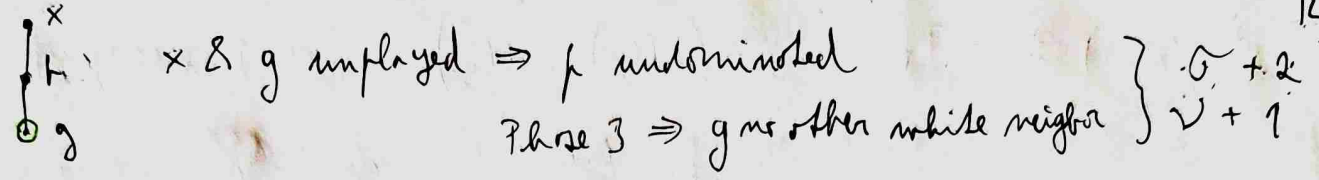 x
p
x & g unplayed ⇒ p undominated } σ + 2
g Phase 3 ⇒ g no other white neighbor ν + 1